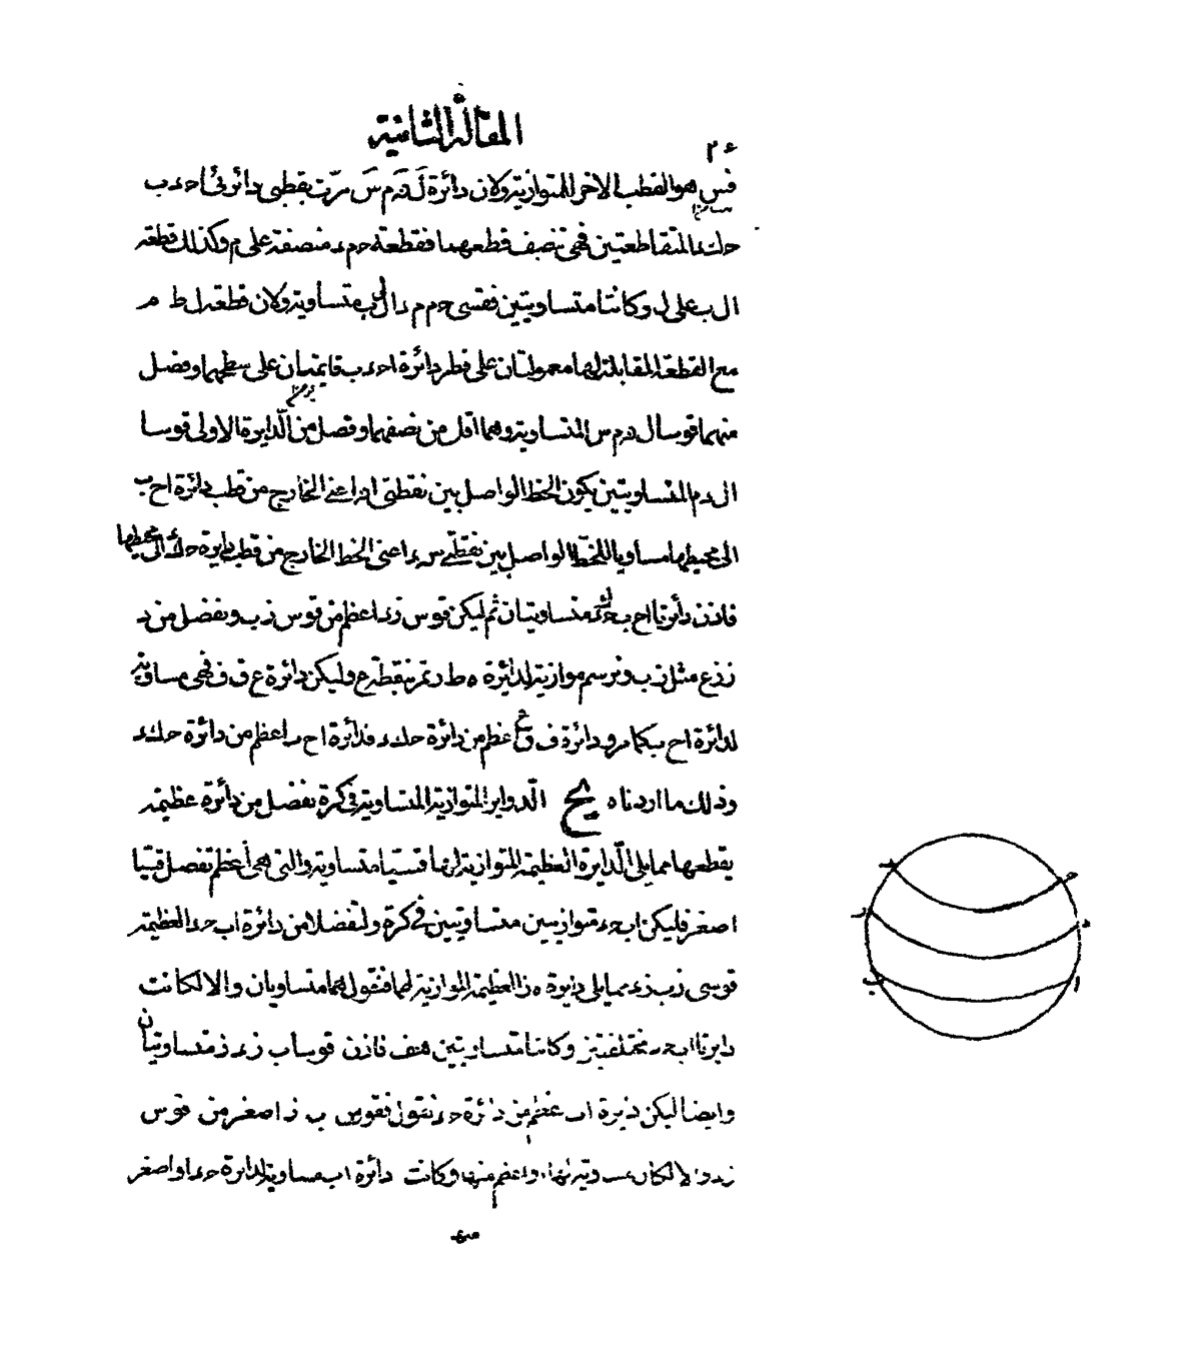 المقالة الثانية
٢٤
فس هو القطب الاخر للمتوازية ولان دائرة ل ه م س مرّت بقطبى دائرتى ا ح ء ب
ح ك ء المتقاطعتين فهى تنصف قطعهما فقطعة ح م ء منصفة على م وكذلك قطعة
ا ل ب على ل وكانتا متساويتين فقسى ح م م ء ا ل ل ب متساوية ولان قطعة ل ط م
مع القطعة المقابلة لها معمولتان على قطر دائرة ا ح ء ب قايمتان على سطحها وفصل
منهما قوسا ل ه م س المتساوية وهما اقل من نصفهما وفصل من الدايرة الاولى قوسا
ا ل ء م المتساويتين يكون الخط الواصل بين نقطتى ا ه اعنى الخارج من قطب دائرة ا ح ب
الى محيطها مساويا للخط الواصل بين نقطتى س ء اعنى الخط الخارج من قطب دايرة ح ك ء الى محيطها
فاذن دائرتا ا ح ب ح ك ء متساويتان ثم ليكن قوس ز ء اعظم من قوس ز ب ونفصل من د
ز ز ع مثل ز ب ونرسم موازية لدائرة ه ط ز تمر بنقطة ع وليكن دائرة ع ق ف فهى مساوية
لدائرة ا ح ب كما مر ودائرة ف ق ع اعظم من دائرة ح ك ء فدائرة ا ح ب اعظم من دائرة ح ك ء
وذلك ما اردناه يح الدواير المتوازية المتساوية فى كرة يفصل من دائرة عظيمة
يقطعها مما يلى الدايرة العظيمة المتوازية لها قسيا متساوية والتى هى أعظم تفصل قسيا
اصغر فليكن ا ب ح ء متوازيتين متساويتين فى كرة ولتفصلا من دائرة ا ب ح ء العظيمة
قوسى ز ب ز ء مما يلى دايرة ه ز العظيمة الموازية لهما فنقول هما متساويان والا لكانت
دايرتا ا ب ح ء مختلفتين وكانتا متساويتين هف فاذن قوسا ب ز ء ز متساويتان
وايضا ليكن دايرة ا ب اعظم من دائرة ح ء نقول فقوس ب ز اصغر من قوس
ز د والا لكان مساوية لها او اعظم منها وكانت دائرة ا ب مساوية لدائرة ح ء او اصغر